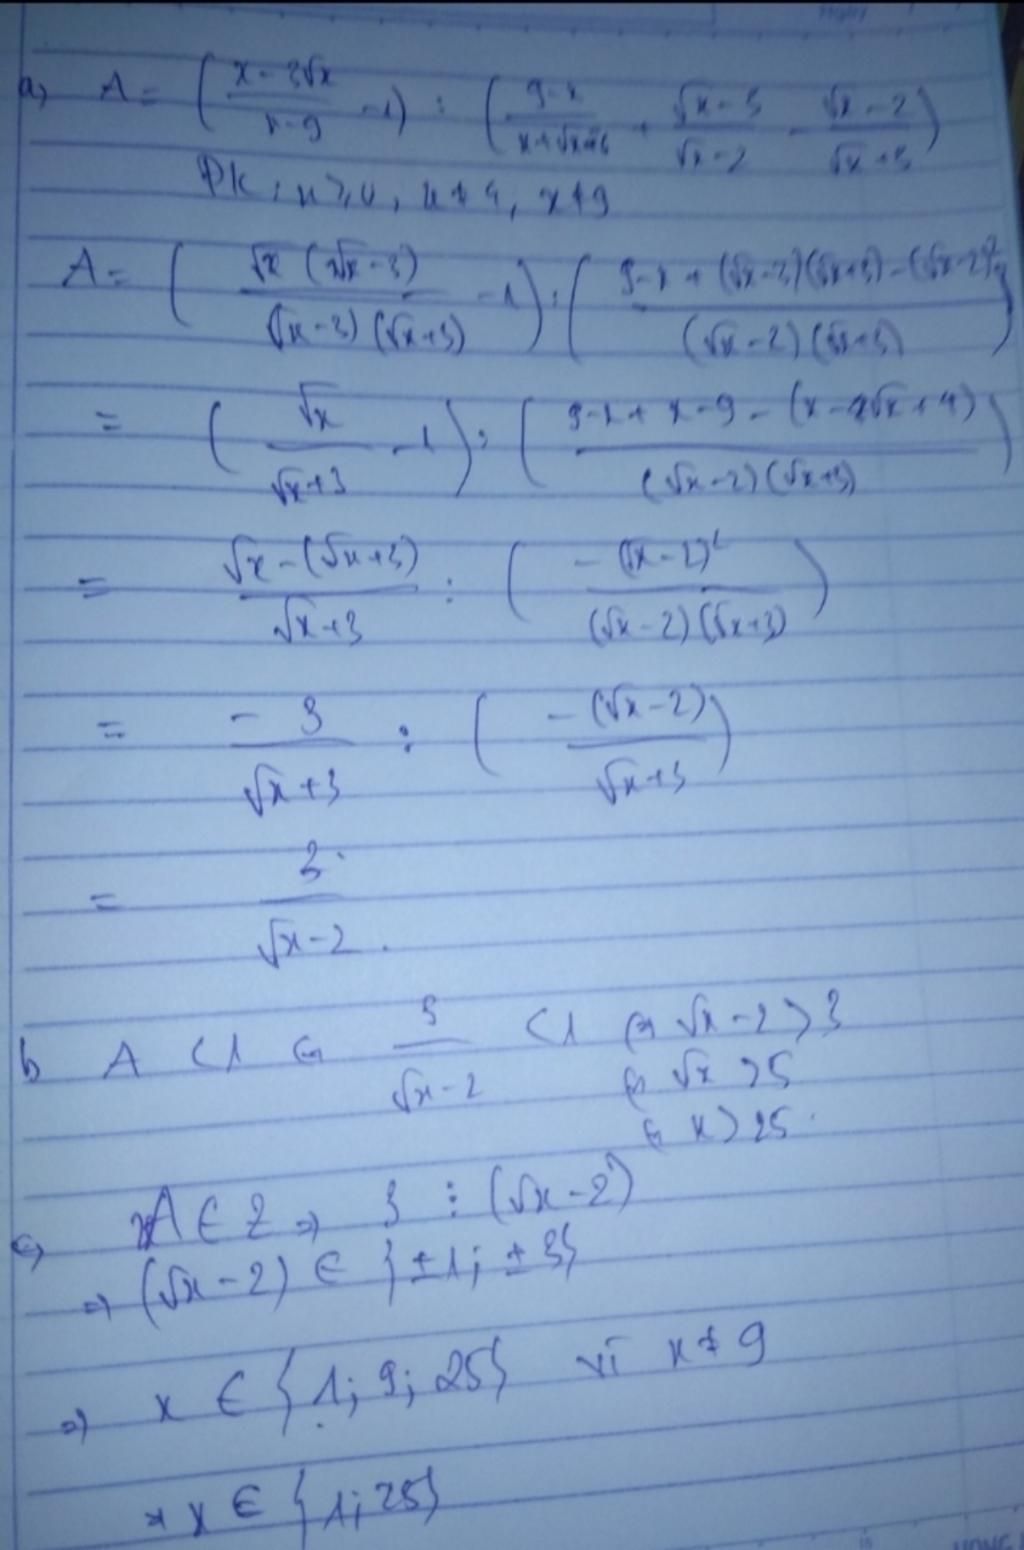 a, A = ( (x - 3√x)/(x - 9) - 1 ) : ( (9 - x)/(x + √x - 6) + (√x - 3)/(√x - 2) - (√x - 2)/(√x + 3) )
ĐK : x ≥ 0, x ≠ 4, x ≠ 9
A = ( √x (√x - 3)/((√x - 3)(√x + 3)) - 1 ) : ( (9 - x + (√x - 3)(√x + 3) - (√x - 2)²)/((√x - 2)(√x + 3)) )
= ( √x/(√x + 3) - 1 ) : ( (9 - x + x - 9 - (x - 4√x + 4))/((√x - 2)(√x + 3)) )
= (√x - (√x + 3))/(√x + 3) : ( -(√x - 2)²/((√x - 2)(√x + 3)) )
= -3/(√x + 3) : ( -(√x - 2)/(√x + 3) )
= 3/(√x - 2) .
b A < 1 ⇔ 3/(√x - 2) < 1 ⇔ √x - 2 > 3
⇔ √x > 5
⇔ x > 25 .
c, A ∈ Z ⇒ 3 ⋮ (√x - 2)
⇒ (√x - 2) ∈ {±1; ±3}
⇒ x ∈ {1; 9; 25} vì x ≠ 9
⇒ x ∈ {1; 25}